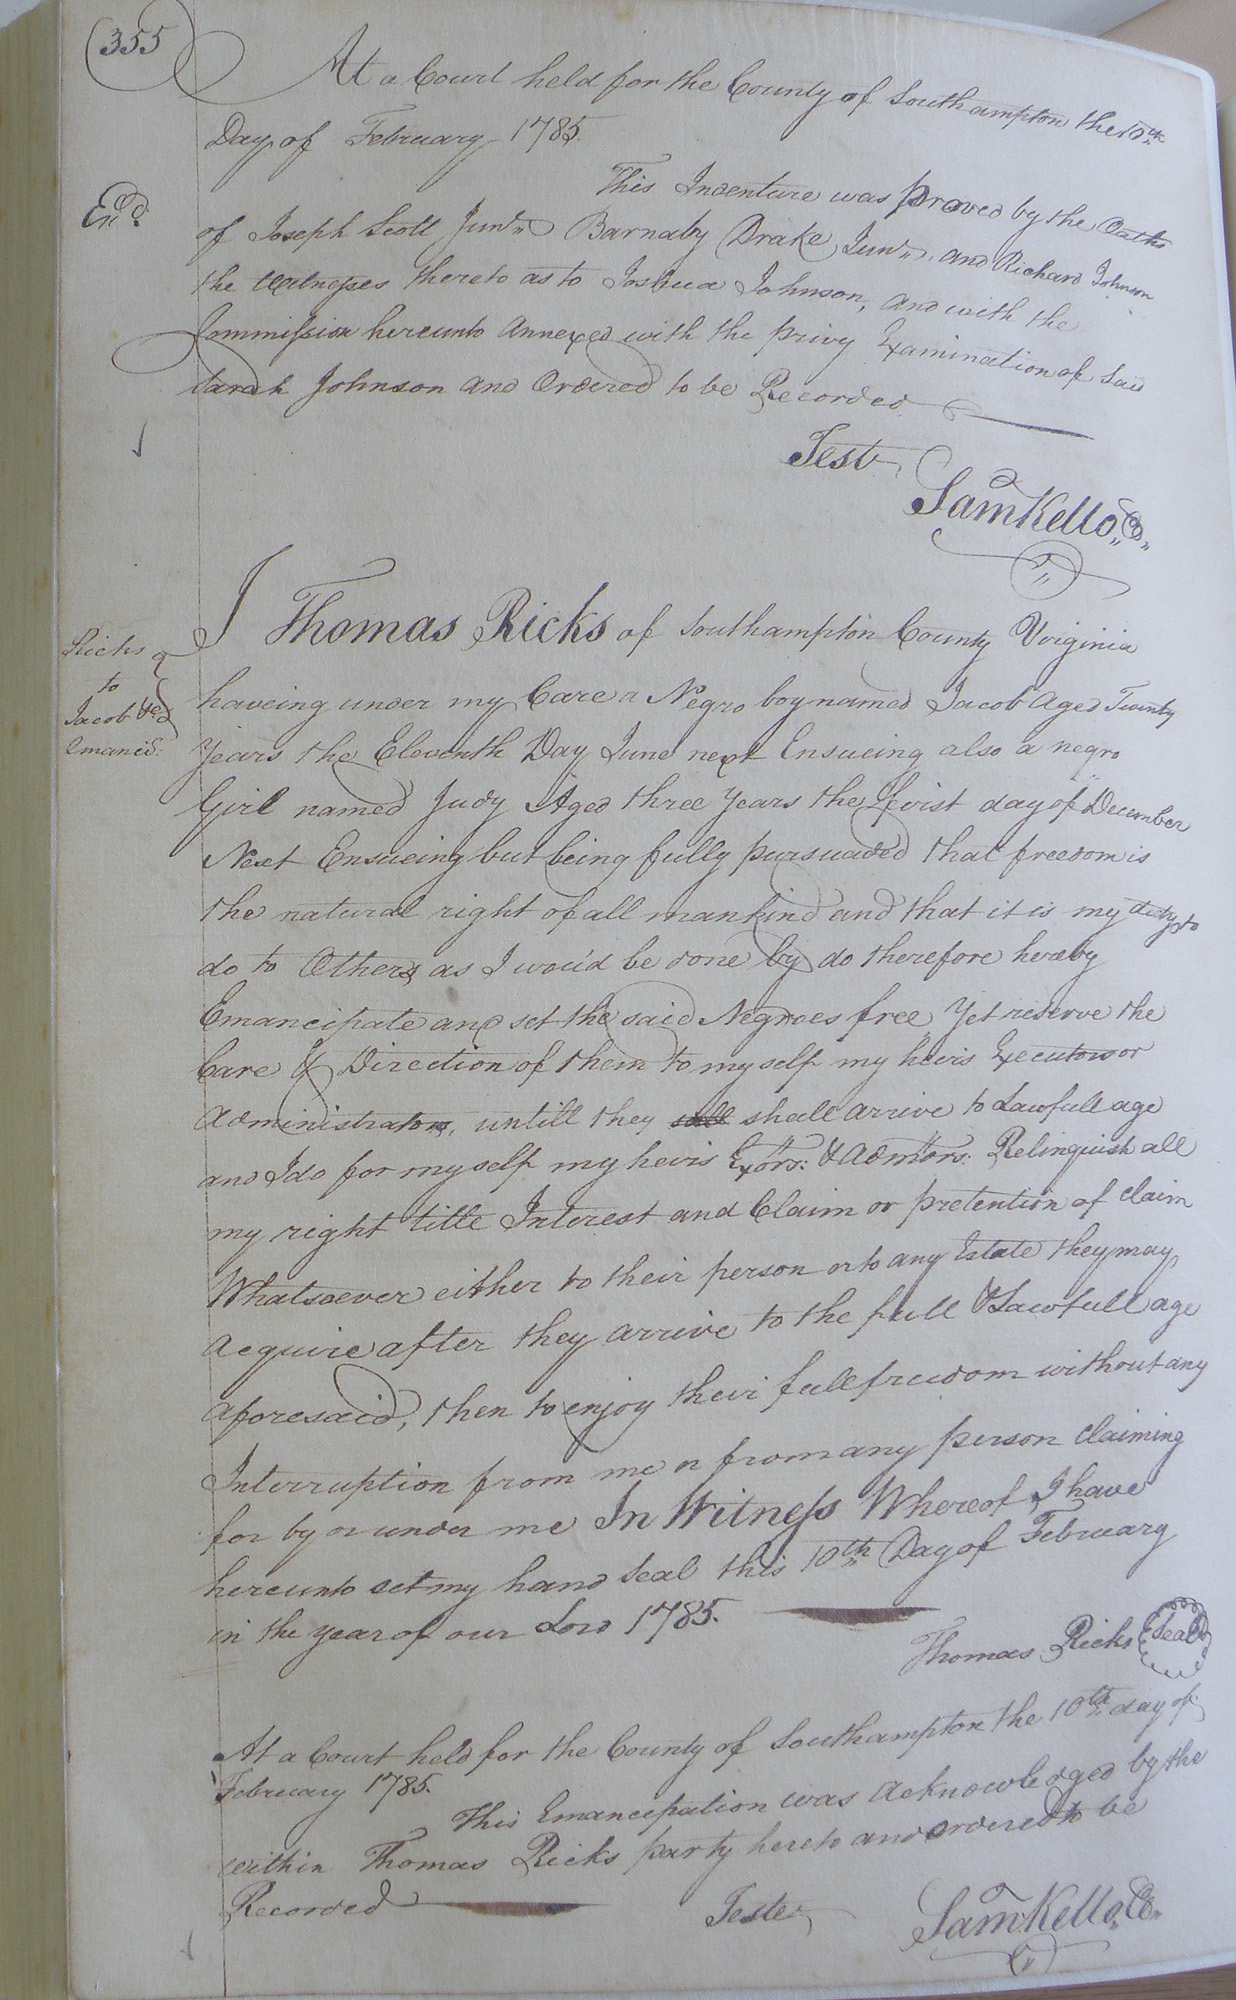 355
At a Court held for the County of Southampton the 10th
Day of February 1785.
Exd.
This Indenture was proved by the Oaths
of Joseph Scott Junr. Barnaby Drake Junr. and Richard Johnson
the Witnesses thereto as to Joshua Johnson, and with the
Commission hereunto annexed with the privy Examination of Said
Sarah Johnson and Ordered to be Recorded
Test
Saml Kello, Cs.
Ricks
to
Jacob &c
Emancid:
I Thomas Ricks of Southampton County Virginia
haveing under my Care a Negro boy named Jacob aged Twenty
Years the Eleventh Day June next Ensueing also a negro
Girl named Judy Aged three Years the first day of December
Next Ensueing but being fully pursuaded that freedom is
the natural right of all mankind and that it is my duty to
do to Others as I wou'd be done by do therefore hereby
Emancipate and set the said Negroes free Yet reserve the
Care & Direction of them to myself my heirs Executors or
Administrators, untill they shall arrive to Lawfull age
and I do for myself my heirs Exors: & Admors: Relinquish all
my right title Interest and Claim or pretention of Claim
Whatsoever either to their person or to any Estate they may
acquire after they arrive to the full & Lawfull age
aforesaid, then to enjoy their full freedom without any
Interruption from me or from any person claiming
for by or under me In Witness Whereof I have
hereunto set my hand Seal this 10th Day of February
in the year of our Lord 1785.
Thomas Ricks Seal
At a Court held for the County of Southampton the 10th day of
February 1785.
This Emancipation was acknowledged by the
within Thomas Ricks party hereto and ordered to be
Recorded
Teste
Saml Kello, Cs.